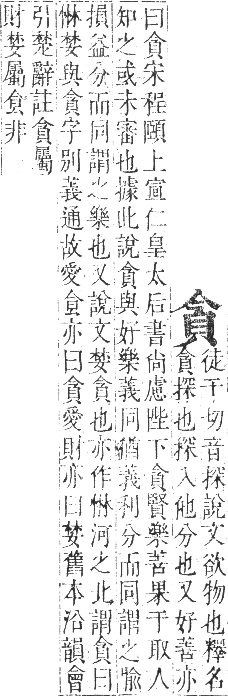 貪
徒干切音探說文欲物也釋名
貪探也探入他分也又好善亦
曰貪宋程頤上宣仁皇太后書尚慮陛下貪賢樂善果于取人
知之或未審也據此說貪與好樂義同猶義利分而同謂之脩
損益分而同謂之樂也又說文婪貪也亦作惏河之北謂貪曰
惏婪與貪字別義通故愛食亦曰貪愛財亦曰婪舊本沿韻會
引楚辭註貪屬
財婪屬食非